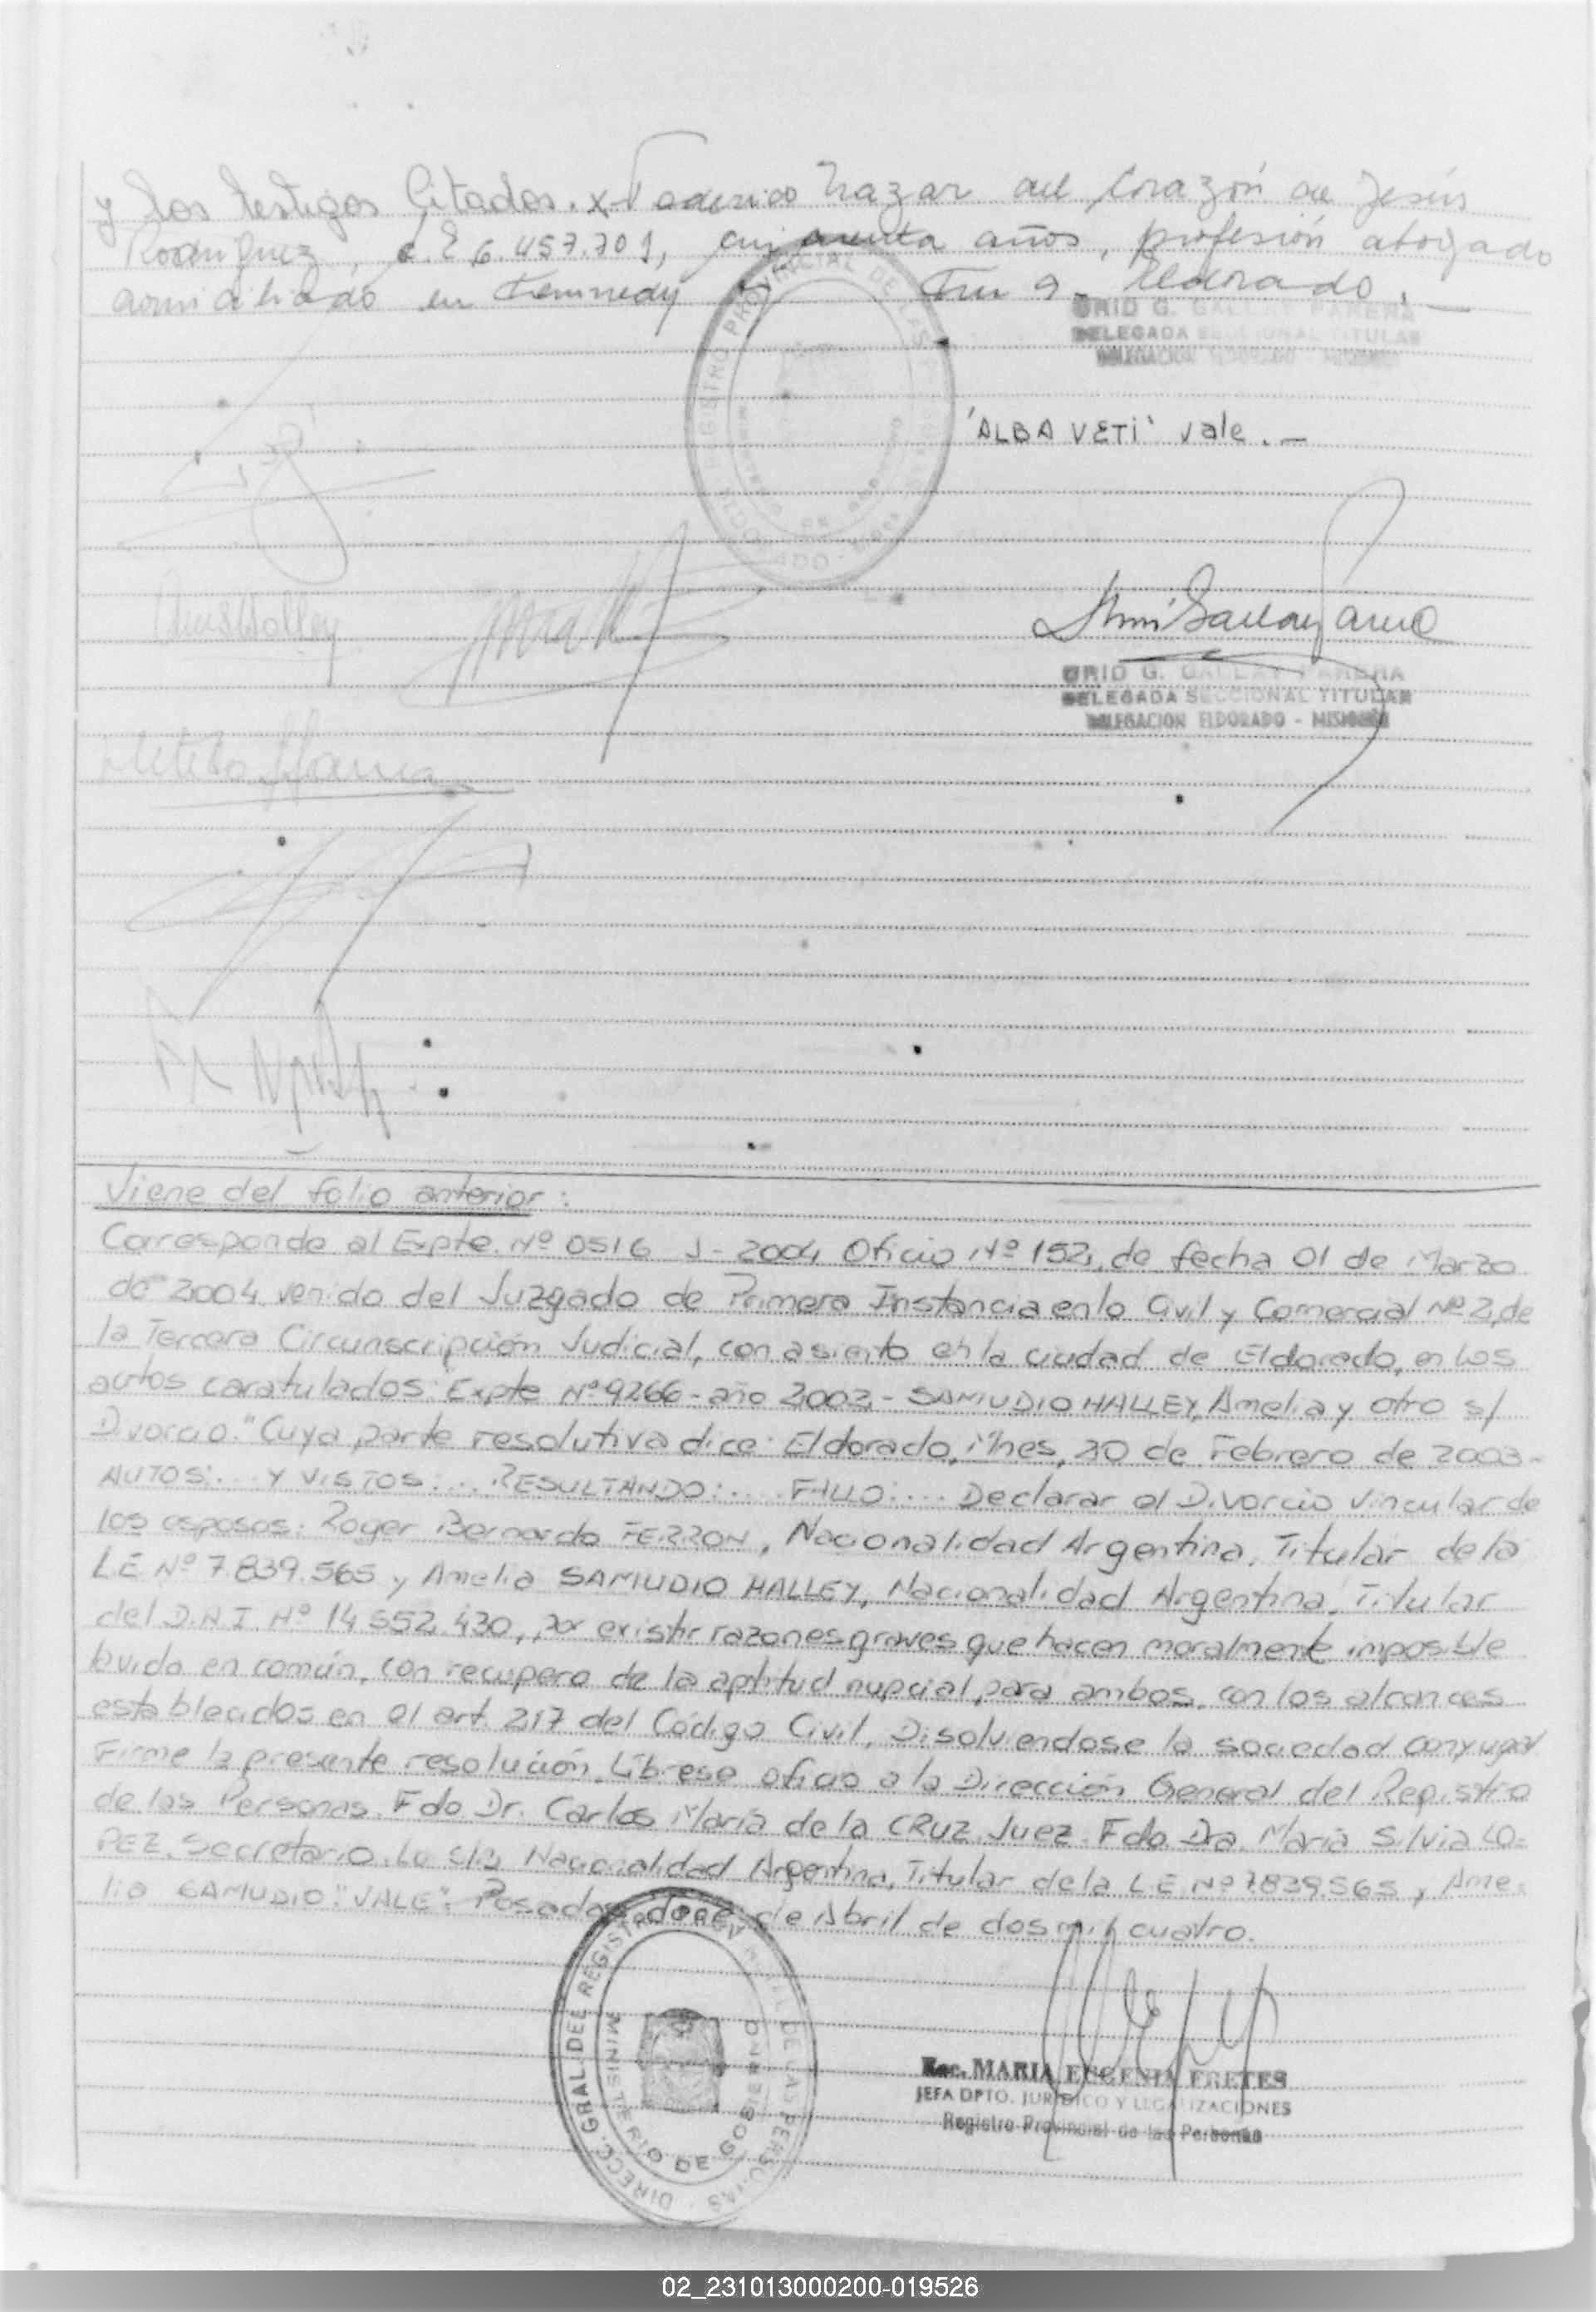 y los testigos Citados. x Federico Nazar del Corazón de Jesús
Rodriguez, L.E 6.457.701, cincuenta años, profesión abogado
domiciliado en Kennedy Km 9 Eldorado.
URID G. GALLAY PARERA
DELEGADA SECCIONAL TITULAR
DELEGACION ELDORADO - MISIONES
"ALBA VETI" vale.-
URID G. GALLAY PARERA
DELEGADA SECCIONAL TITULAR
DELEGACION ELDORADO - MISIONES
Viene del folio anterior:
Corresponde al Expte. Nº 0516 J-2004 Oficio Nº 152, de fecha 01 de Marzo
de 2004 venido del Juzgado de Primera Instancia en lo Civil y Comercial Nº 2, de
la Tercera Circunscripción Judicial, con asiento en la ciudad de Eldorado, en los
autos caratulados: Expte Nº 9266-año 2002- SAMUDIO HALLEY, Amelia y otro s/
Divorcio." Cuya parte resolutiva dice: Eldorado, Mnes, 20 de Febrero de 2003-
AUTOS:... Y VISTOS:... RESULTANDO:... FALLO:... Declarar el Divorcio Vincular de
los esposos: Roger Bernardo FERRON, Nacionalidad Argentina, Titular de la
LE Nº 7.839.565 y Amelia SAMUDIO HALLEY, Nacionalidad Argentina, Titular
del D.N.I. Nº 14.552.430, por existir razones graves que hacen moralmente imposible
la vida en común, con recupero de la aptitud nupcial para ambos, con los alcances
establecidos en el art. 217 del Código Civil, Disolviendose la sociedad conyugal
Firme la presente resolución. Librese oficio a la Dirección General del Registro
de las Personas. Fdo Dr. Carlos María de la CRUZ Juez. Fdo Dra. María Silvia LO=
PEZ. Secretario. Lo s/r Nacionalidad Argentina, Titular de la LE Nº 7839.565 y Ame=
lia SAMUDIO: "VALE": Posadas, doce de Abril de dos mil cuatro.
DIRECC. GRAL. DEL REGISTRO PROVINCIAL DE LAS PERSONAS
MINISTERIO DE GOBIERNO
Esc. MARIA EUGENIA FRETES
JEFA DPTO. JURIDICO Y LEGALIZACIONES
Registro Provincial de las Personas
02_231013000200-019526